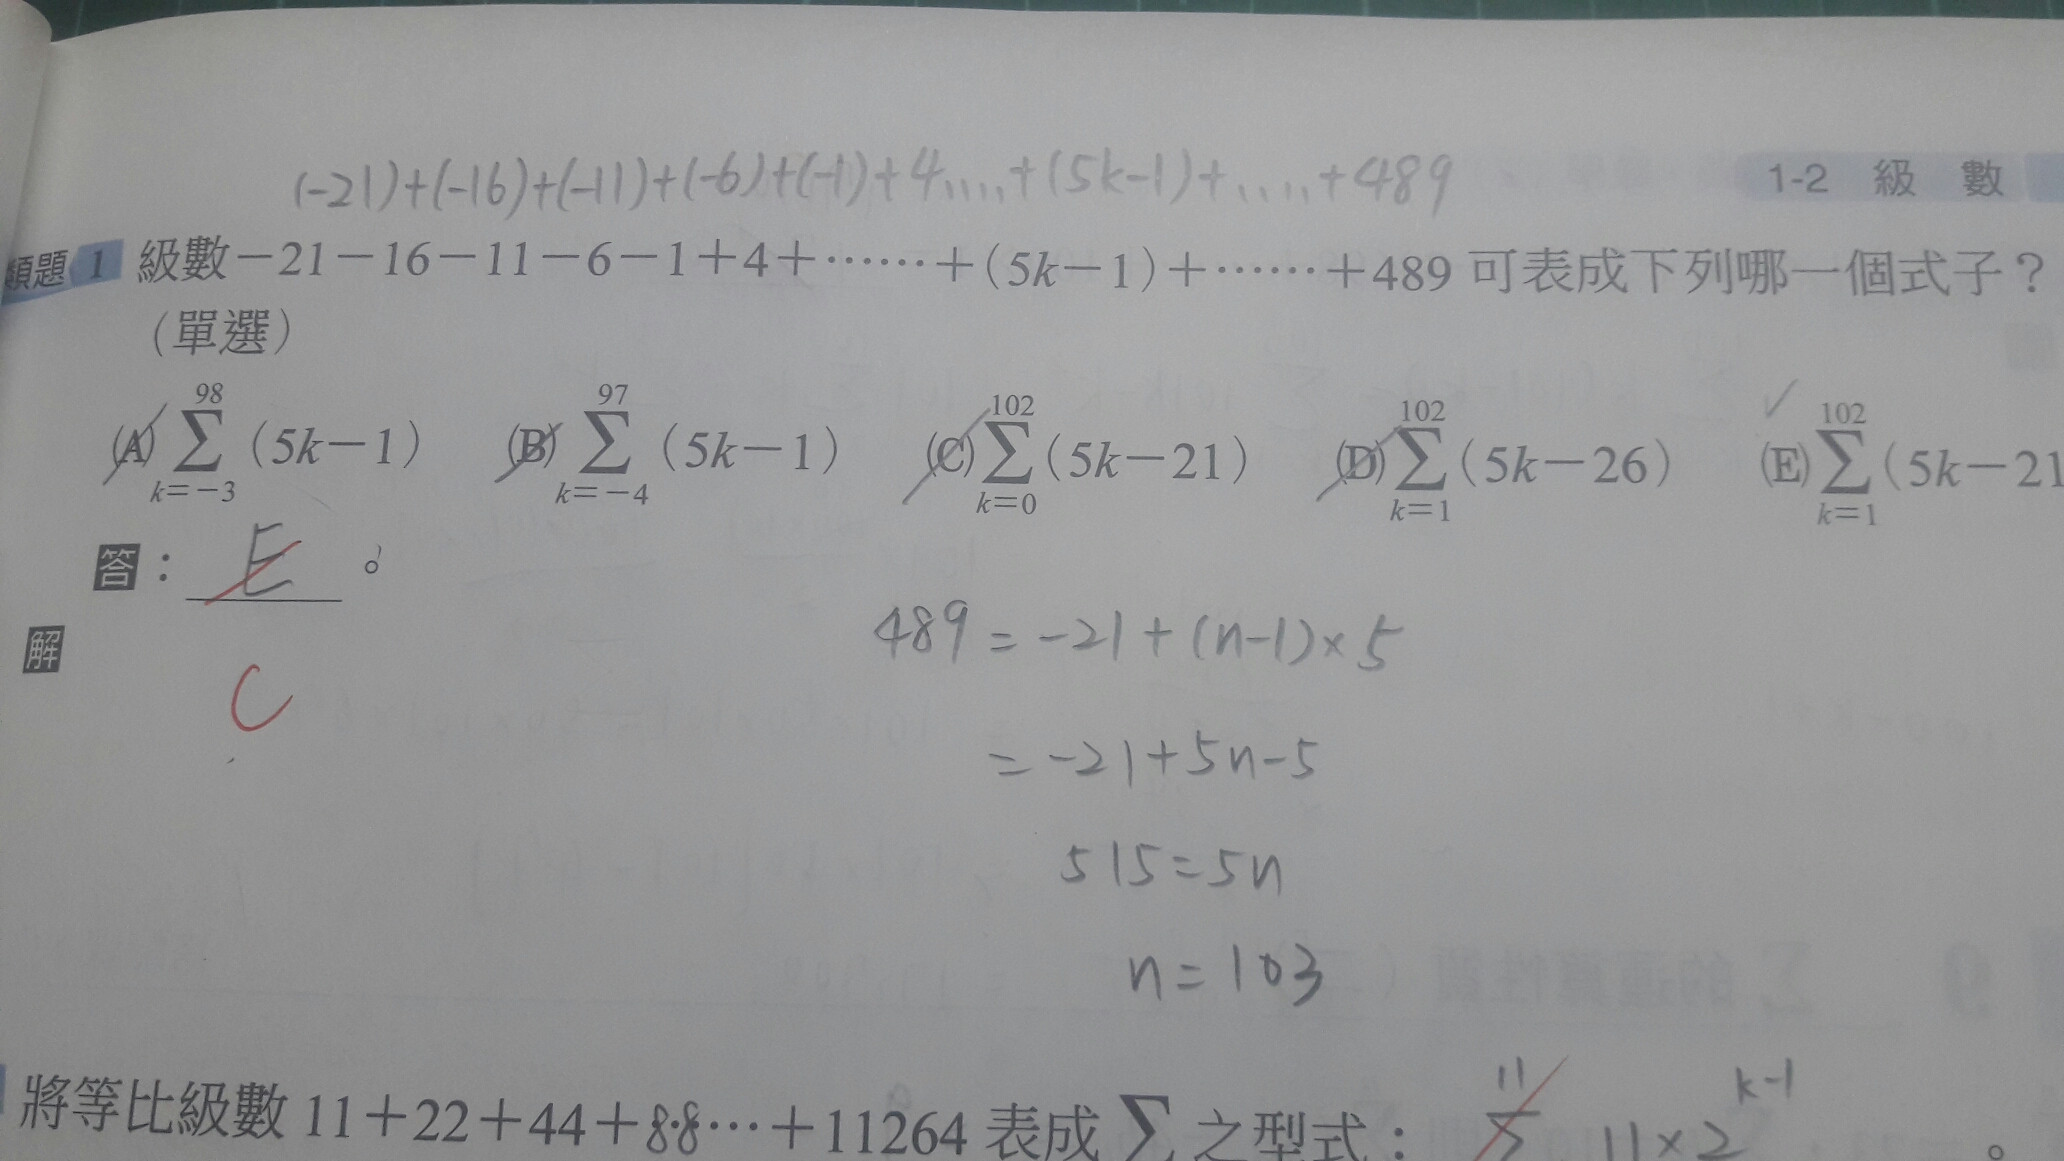 (-21)+(-16)+(-11)+(-6)+(-1)+4....+(5k-1)+....+489
1-2 級 數
類題 1 級數－21－16－11－6－1＋4＋……＋(5k－1)＋……＋489 可表成下列哪一個式子？
(單選)
(A) ∑_{k=-3}^{98} (5k－1) (B) ∑_{k=-4}^{97} (5k－1) (C) ∑_{k=0}^{102} (5k－21) (D) ∑_{k=1}^{102} (5k－26) ✓ (E) ∑_{k=1}^{102} (5k－21
答：E。
解
C
489 = -21 + (n-1)×5
= -21+5n-5
515=5n
n=103
將等比級數 11＋22＋44＋88…＋11264 表成 ∑ 之型式： ∑^{11} 11×2^{k-1} 。